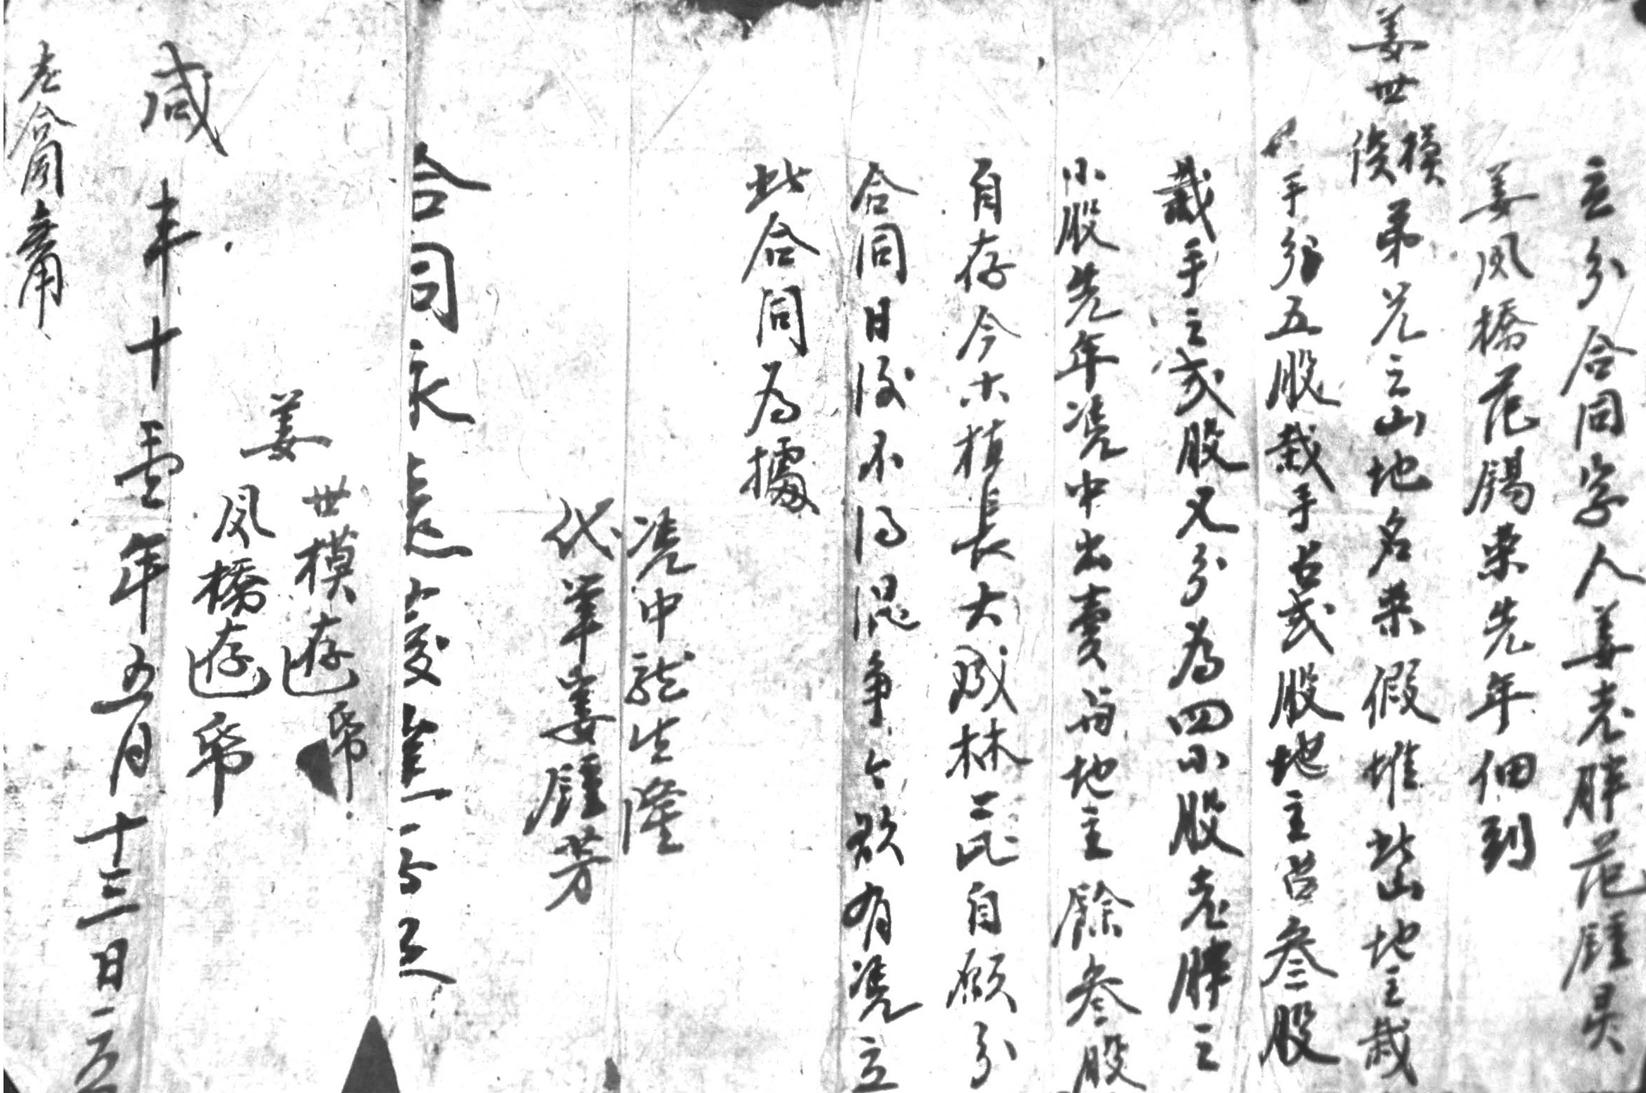 立分合同字人姜老胖范鍾灵
姜凤橋范錫荣先年佃到
姜世模俊弟兄之山地名荣假堆此山地主栽
手分五股栽手占弍股地主占叁股
栽手之弍股又分為四小股老胖之
小股先年凴中出賣与地主餘叁股
自存今木植長大成林二比自願分
合同日後不得混争今欲有凴立
此合同為據
凴中龍生隆
代筆姜鍾芳
合同永遠發達為照
姜
世模存一帋
凤橋存一帋
咸丰十壹年五月十三日立